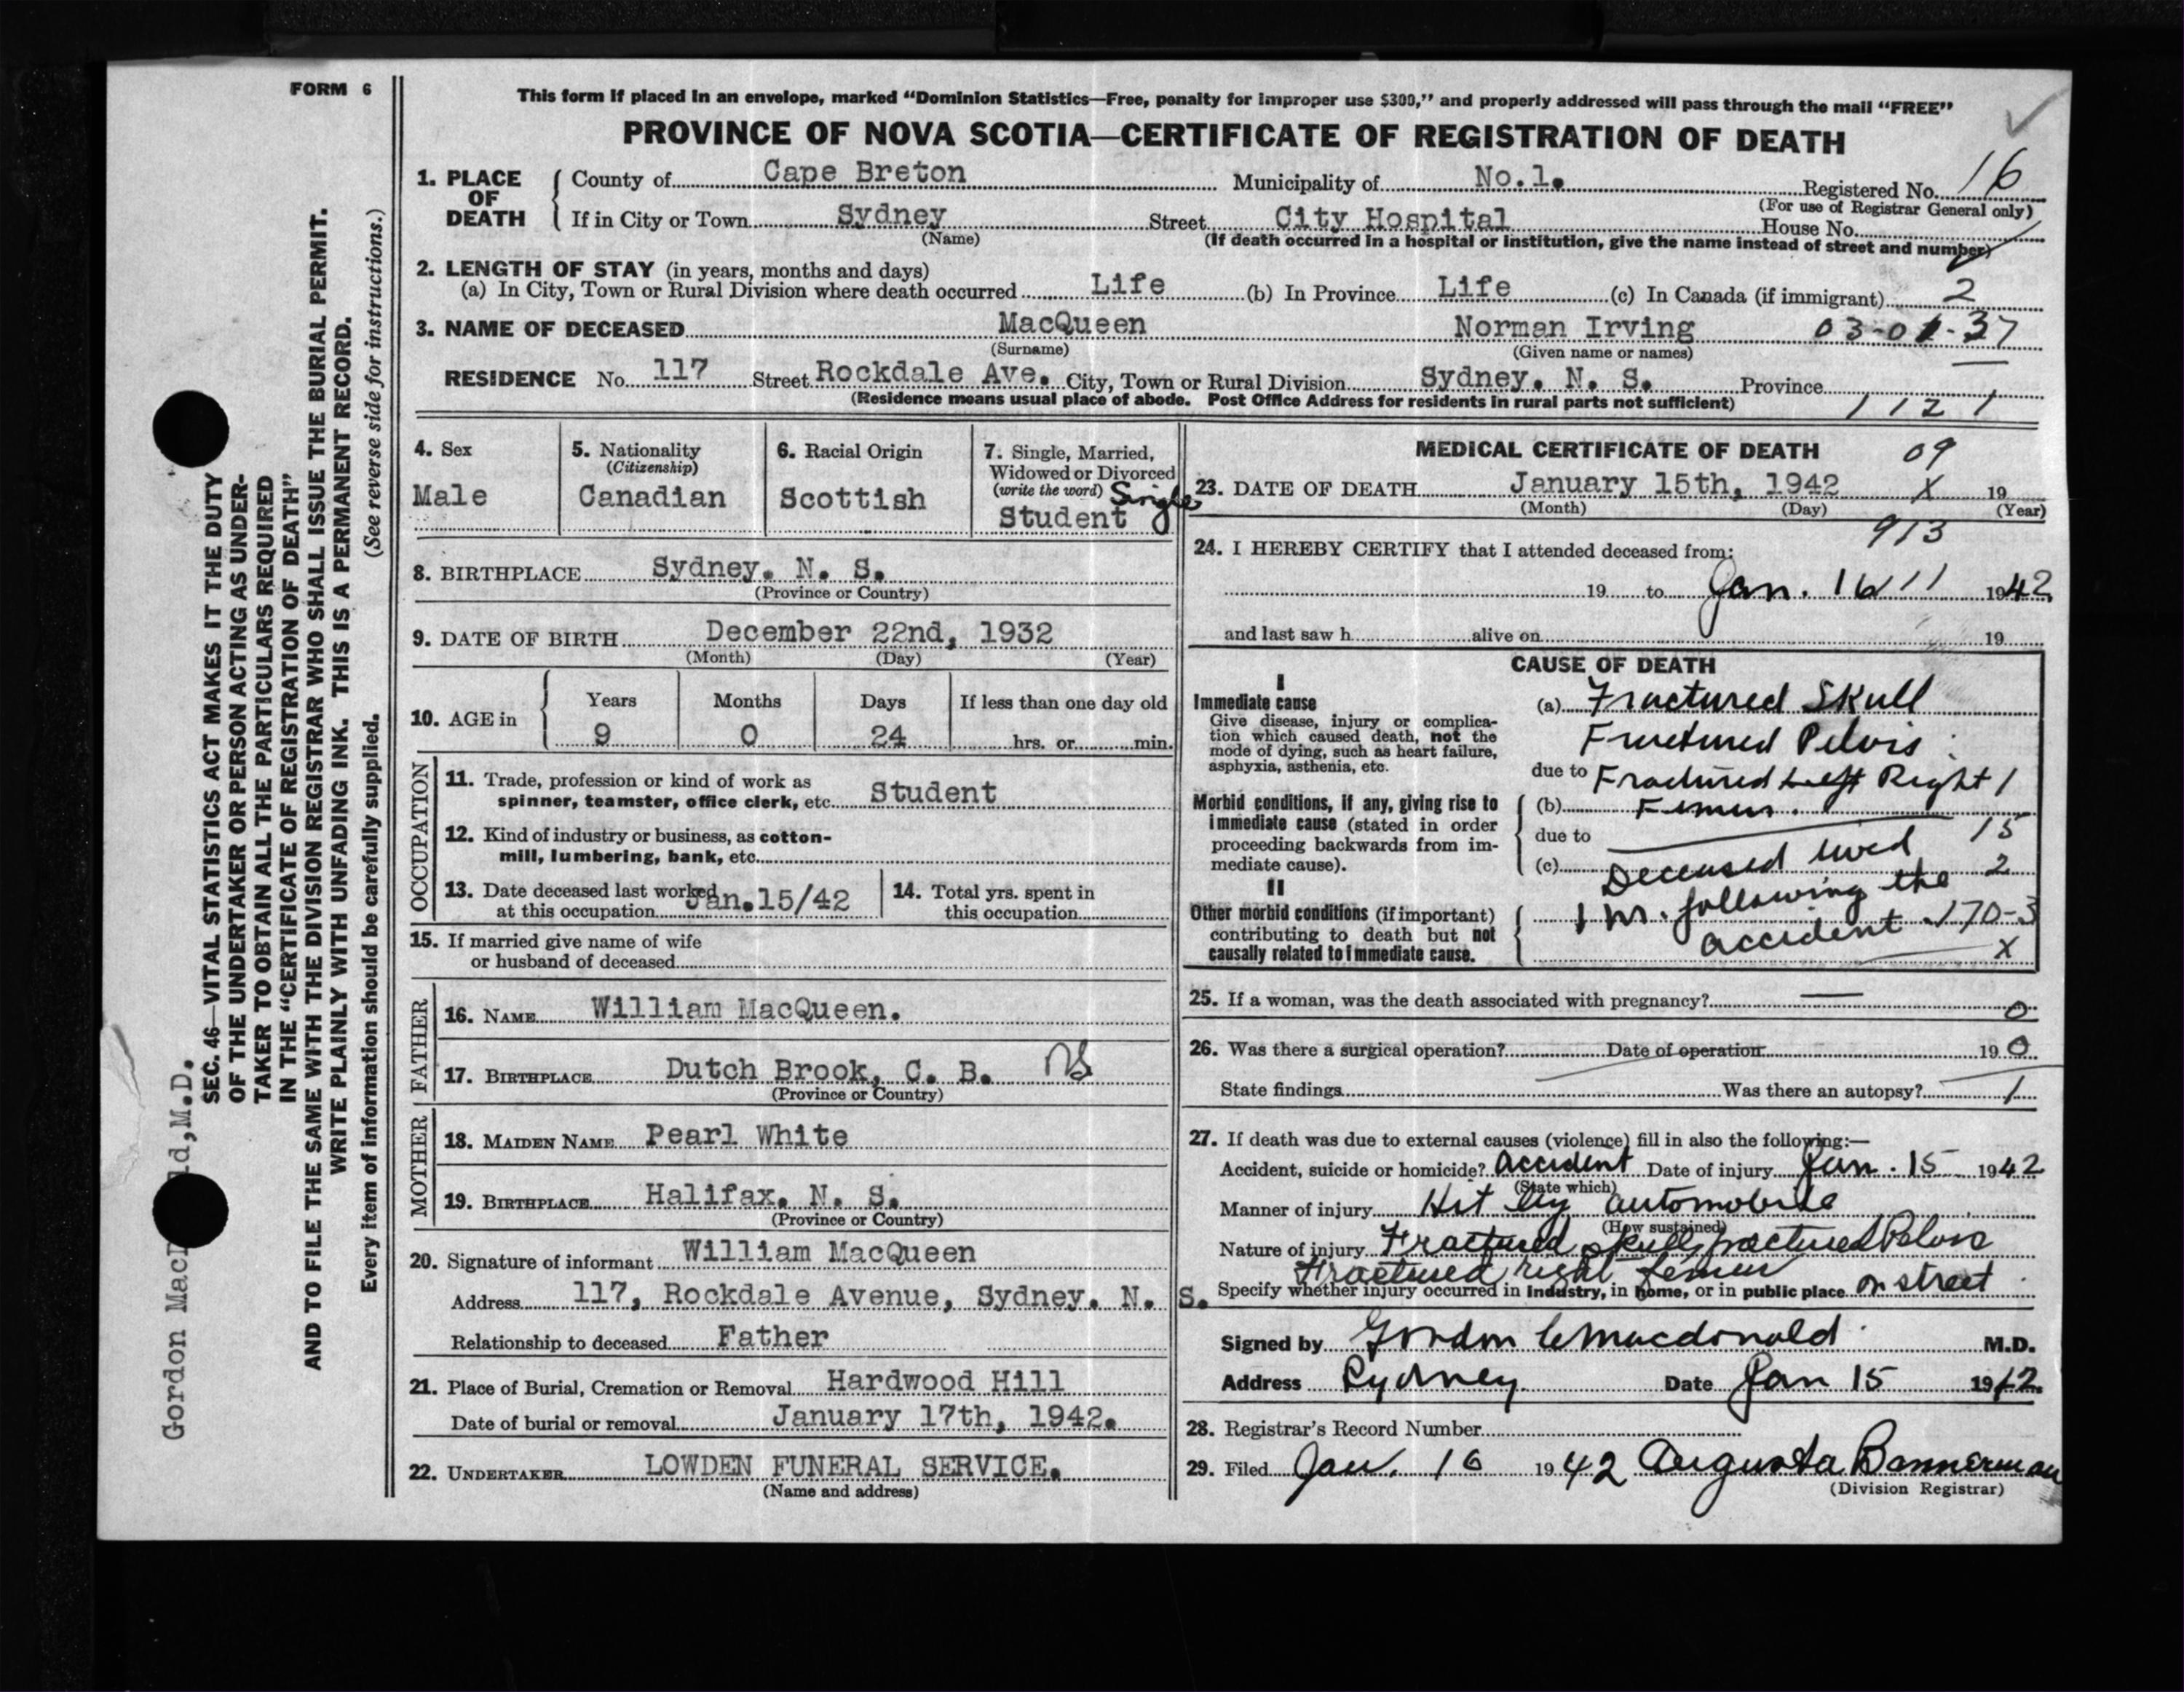 FORM 6
This form if placed in an envelope, marked “Dominion Statistics—Free, penalty for improper use $300,” and properly addressed will pass through the mail “FREE”
PROVINCE OF NOVA SCOTIA—CERTIFICATE OF REGISTRATION OF DEATH
1. PLACE OF DEATH
County of Cape Breton Municipality of No.1. Registered No. 16
(For use of Registrar General only)
If in City or Town Sydney Street City Hospital House No.
(Name) (If death occurred in a hospital or institution, give the name instead of street and number)
2. LENGTH OF STAY (in years, months and days)
(a) In City, Town or Rural Division where death occurred Life (b) In Province Life (c) In Canada (if immigrant) 2
3. NAME OF DECEASED MacQueen Norman Irving 03-01-37
(Surname) (Given name or names)
RESIDENCE No. 117 Street Rockdale Ave. City, Town or Rural Division Sydney. N. S. Province
(Residence means usual place of abode. Post Office Address for residents in rural parts not sufficient) 1 1 2 1
4. Sex
Male
5. Nationality
(Citizenship)
Canadian
6. Racial Origin
Scottish
7. Single, Married,
Widowed or Divorced
(write the word) Single
Student
8. BIRTHPLACE Sydney. N. S.
(Province or Country)
9. DATE OF BIRTH December 22nd, 1932
(Month) (Day) (Year)
10. AGE in
Years Months Days If less than one day old
9 0 24 hrs. or min.
OCCUPATION
11. Trade, profession or kind of work as
spinner, teamster, office clerk, etc. Student
12. Kind of industry or business, as cotton-
mill, lumbering, bank, etc.
13. Date deceased last worked
at this occupation Jan.15/42
14. Total yrs. spent in
this occupation
15. If married give name of wife
or husband of deceased
FATHER
16. NAME William MacQueen.
17. BIRTHPLACE Dutch Brook, C. B. NS
(Province or Country)
MOTHER
18. MAIDEN NAME Pearl White
19. BIRTHPLACE Halifax. N. S.
(Province or Country)
20. Signature of informant William MacQueen
Address 117, Rockdale Avenue, Sydney. N. S.
Relationship to deceased Father
21. Place of Burial, Cremation or Removal Hardwood Hill
Date of burial or removal January 17th, 1942.
22. UNDERTAKER LOWDEN FUNERAL SERVICE.
(Name and address)
MEDICAL CERTIFICATE OF DEATH 09
23. DATE OF DEATH January 15th, 1942 X 19
(Month) (Day) (Year)
913
24. I HEREBY CERTIFY that I attended deceased from:
19 to Jan. 16 11 1942
and last saw h alive on 19
CAUSE OF DEATH
I
Immediate cause
Give disease, injury or complica-
tion which caused death, not the
mode of dying, such as heart failure,
asphyxia, asthenia, etc.
(a) Fractured Skull
Fractured Pelvis
due to Fractured Left Right 1
Morbid conditions, if any, giving rise to
immediate cause (stated in order
proceeding backwards from im-
mediate cause).
(b) Femur.
due to 15
(c) Deceased lived 2
II
Other morbid conditions (if important)
contributing to death but not
causally related to immediate cause.
1 hr. following the
accident 170-3
X
25. If a woman, was the death associated with pregnancy? — 0
26. Was there a surgical operation? Date of operation 19 0
State findings Was there an autopsy? 1
27. If death was due to external causes (violence) fill in also the following:—
Accident, suicide or homicide? Accident Date of injury Jan. 15 1942
(State which)
Manner of injury Hit by automobile
(How sustained)
Nature of injury Fractured skull fractured Pelvis
Fractured right femur
Specify whether injury occurred in industry, in home, or in public place on street
Signed by Gordon C Macdonald M.D.
Address Sydney Date Jan 15 1942.
28. Registrar's Record Number
29. Filed Jan. 16 1942 Augusta Bannerman
(Division Registrar)
Gordon MacD ld,M.D.
SEC. 46—VITAL STATISTICS ACT MAKES IT THE DUTY
OF THE UNDERTAKER OR PERSON ACTING AS UNDER-
TAKER TO OBTAIN ALL THE PARTICULARS REQUIRED
IN THE “CERTIFICATE OF REGISTRATION OF DEATH”
AND TO FILE THE SAME WITH THE DIVISION REGISTRAR WHO SHALL ISSUE THE BURIAL PERMIT.
WRITE PLAINLY WITH UNFADING INK. THIS IS A PERMANENT RECORD.
Every item of information should be carefully supplied. (See reverse side for instructions.)